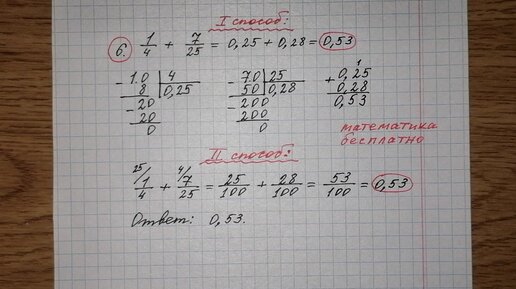 I способ:
6. 1/4 + 7/25 = 0,25 + 0,28 = 0,53
- 1.0 | 4
8 | 0,25
- 20
20
0
- 7.0 | 25
50 | 0,28
- 200
200
0
1
+ 0,25
0,28
0,53
математика
бесплатно
II способ:
25/ 1/4 + 4/ 7/25 = 25/100 + 28/100 = 53/100 = 0,53
Ответ: 0,53.